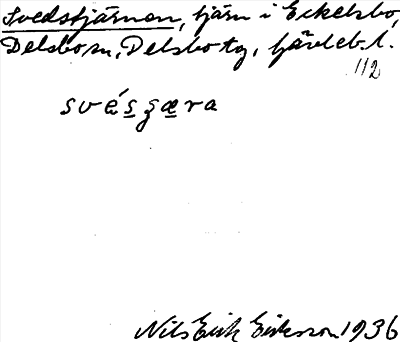 Svedstjärnen, tjärn i Eckelsbo,
Delsbo sn, Delsbo tg, Gävleb. l.
112
svészæra
Nils Erik Eriksson 1936